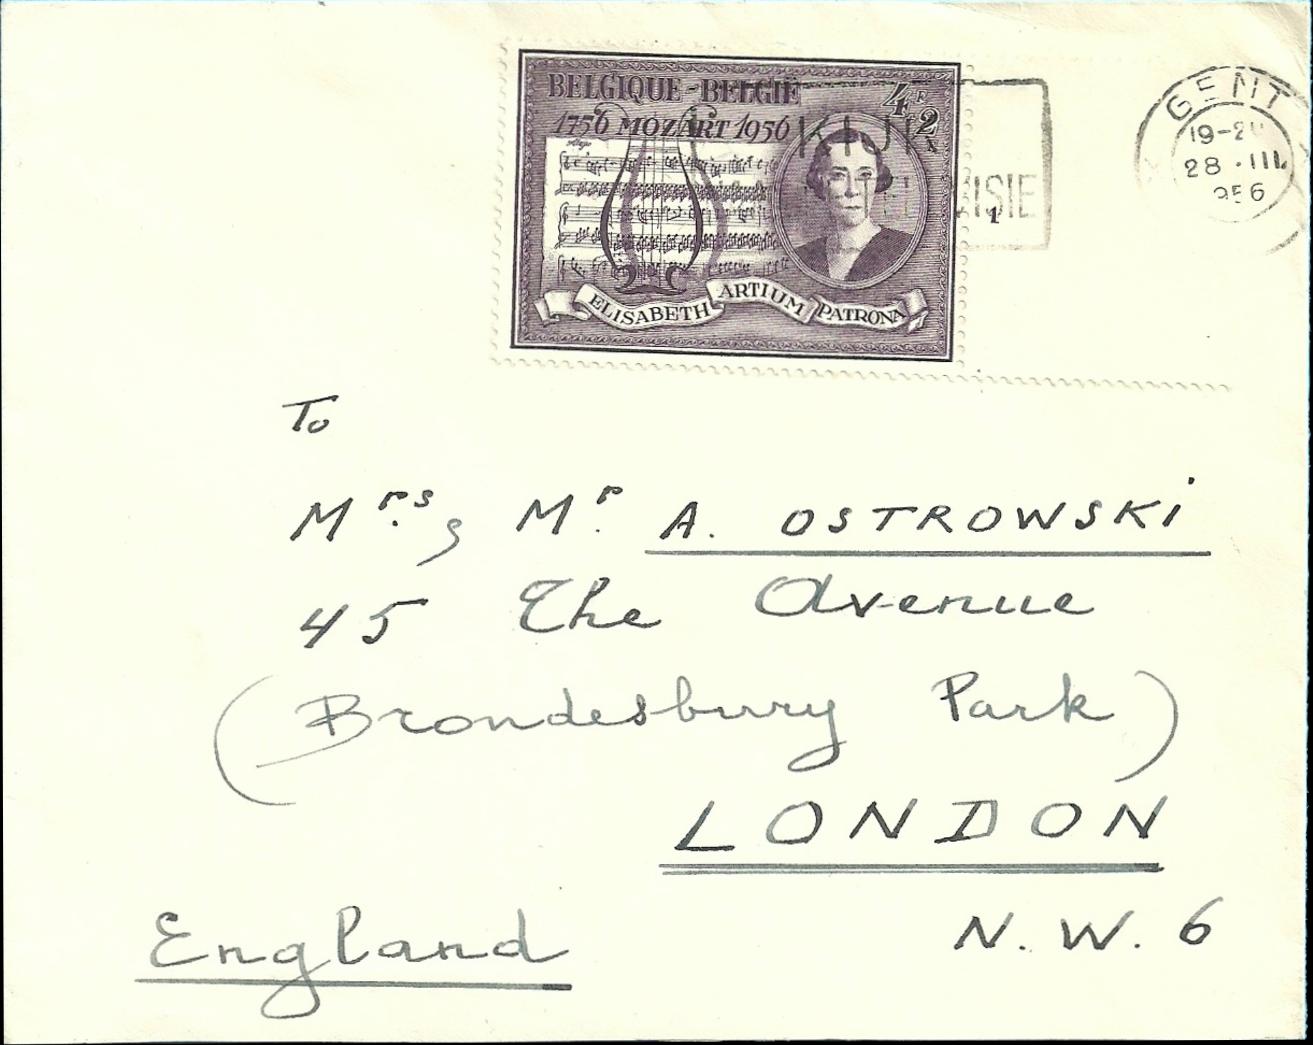 BELGIQUE-BELGIË
4F 2
1756 MOZART 1956
ELISABETH ARTIUM PATRONA
KIJK
GENT
28 · III
956
To
Mrs & Mr. A. OSTROWSKI
45 The Avenue
(Brondesbury Park)
LONDON
N.W. 6
England